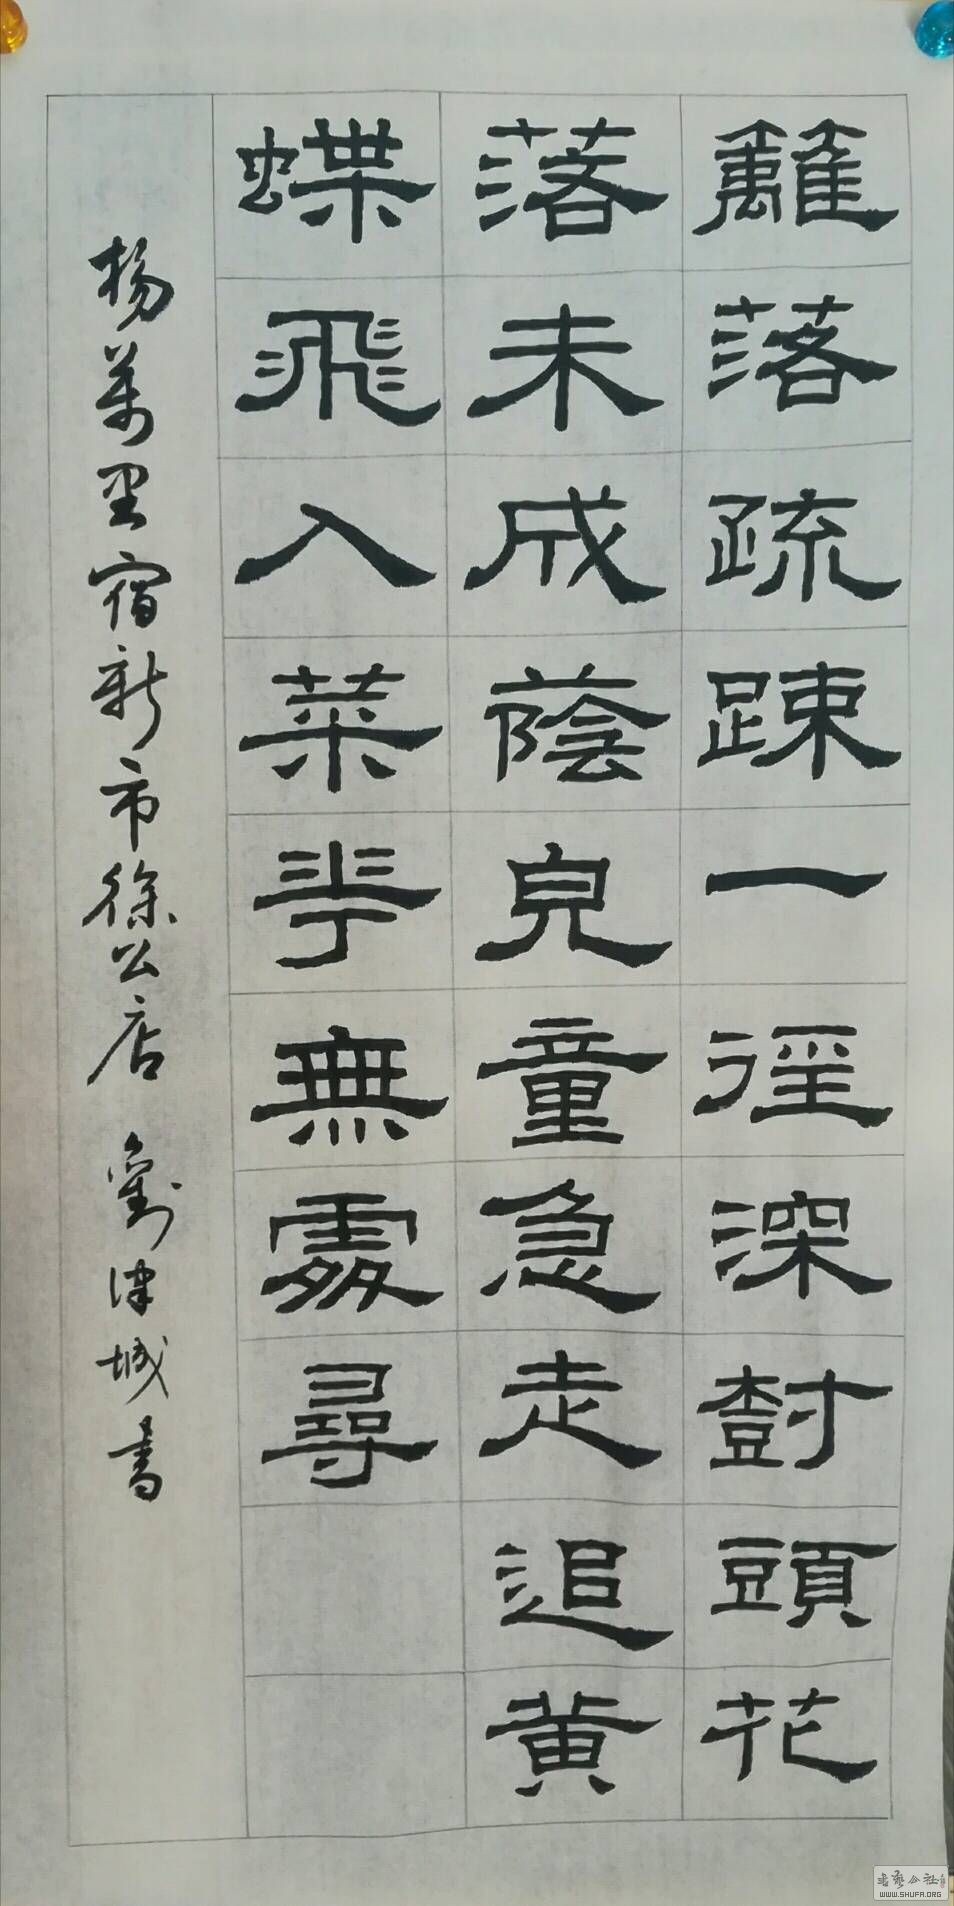 籬落疏踈一徑深樹頭花
落未成蔭兒童急走追黃
蝶飛入菜花無處尋
楊萬里宿新市徐公店 劉津城書
书艺公社
WWW.SHUFA.ORG